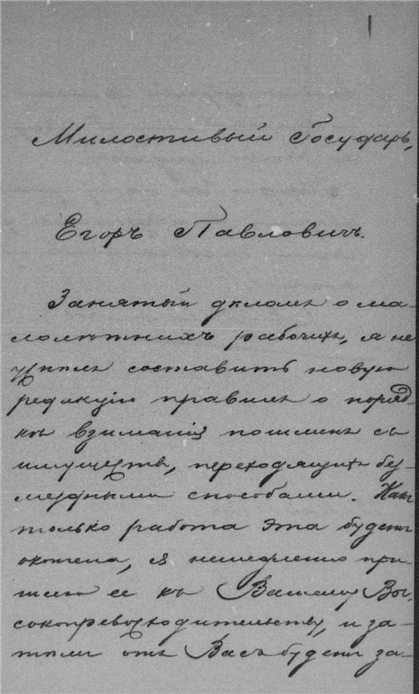 Милостивый Государь,
Егоръ Павловичъ.
Занятый дѣломъ о ма-
лолѣтнихъ рабочихъ, я не
успѣлъ составить новую
редакцію правилъ о поряд-
кѣ взиманія пошлинъ съ
имуществъ, переходящихъ без-
мездными способами. Какъ
только работа эта будетъ
окончена, я немедленно при-
шлю ее къ Вашему Вы-
сокопревосходительству, и за-
тѣмъ отъ Васъ будетъ за-